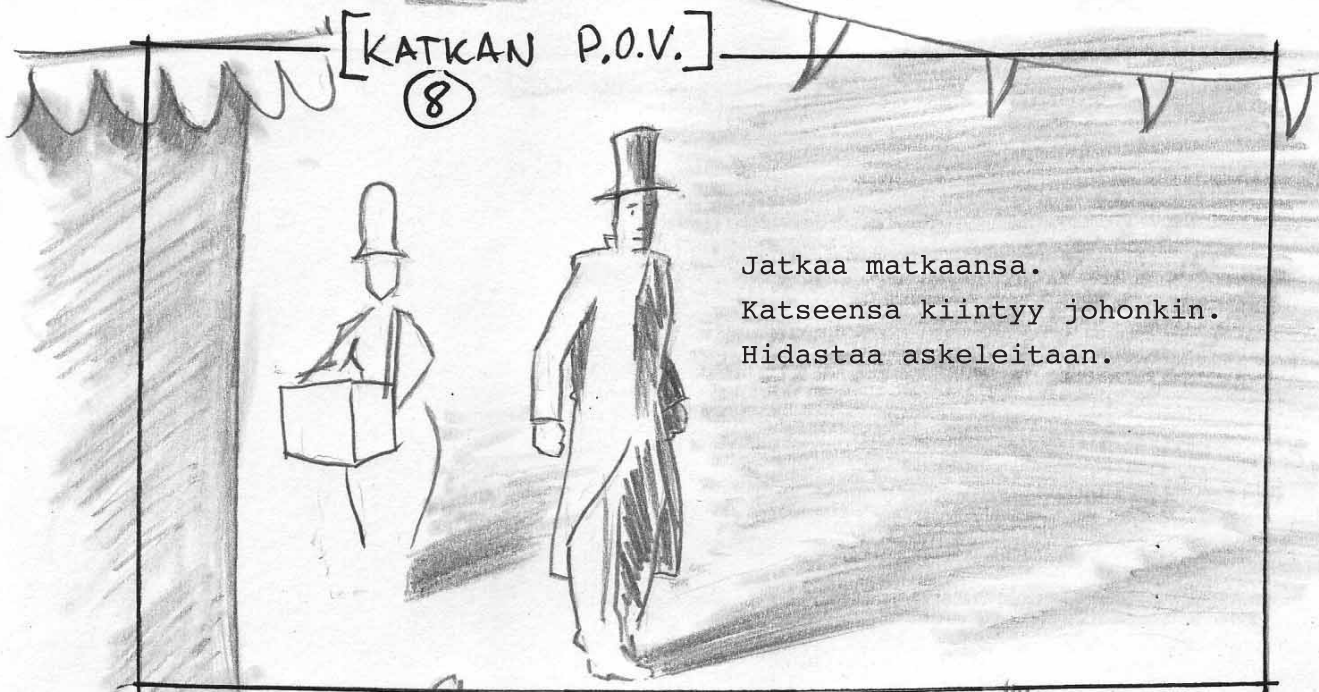 [KATKAN P.O.V.]
8
Jatkaa matkaansa.
Katseensa kiintyy johonkin.
Hidastaa askeleitaan.